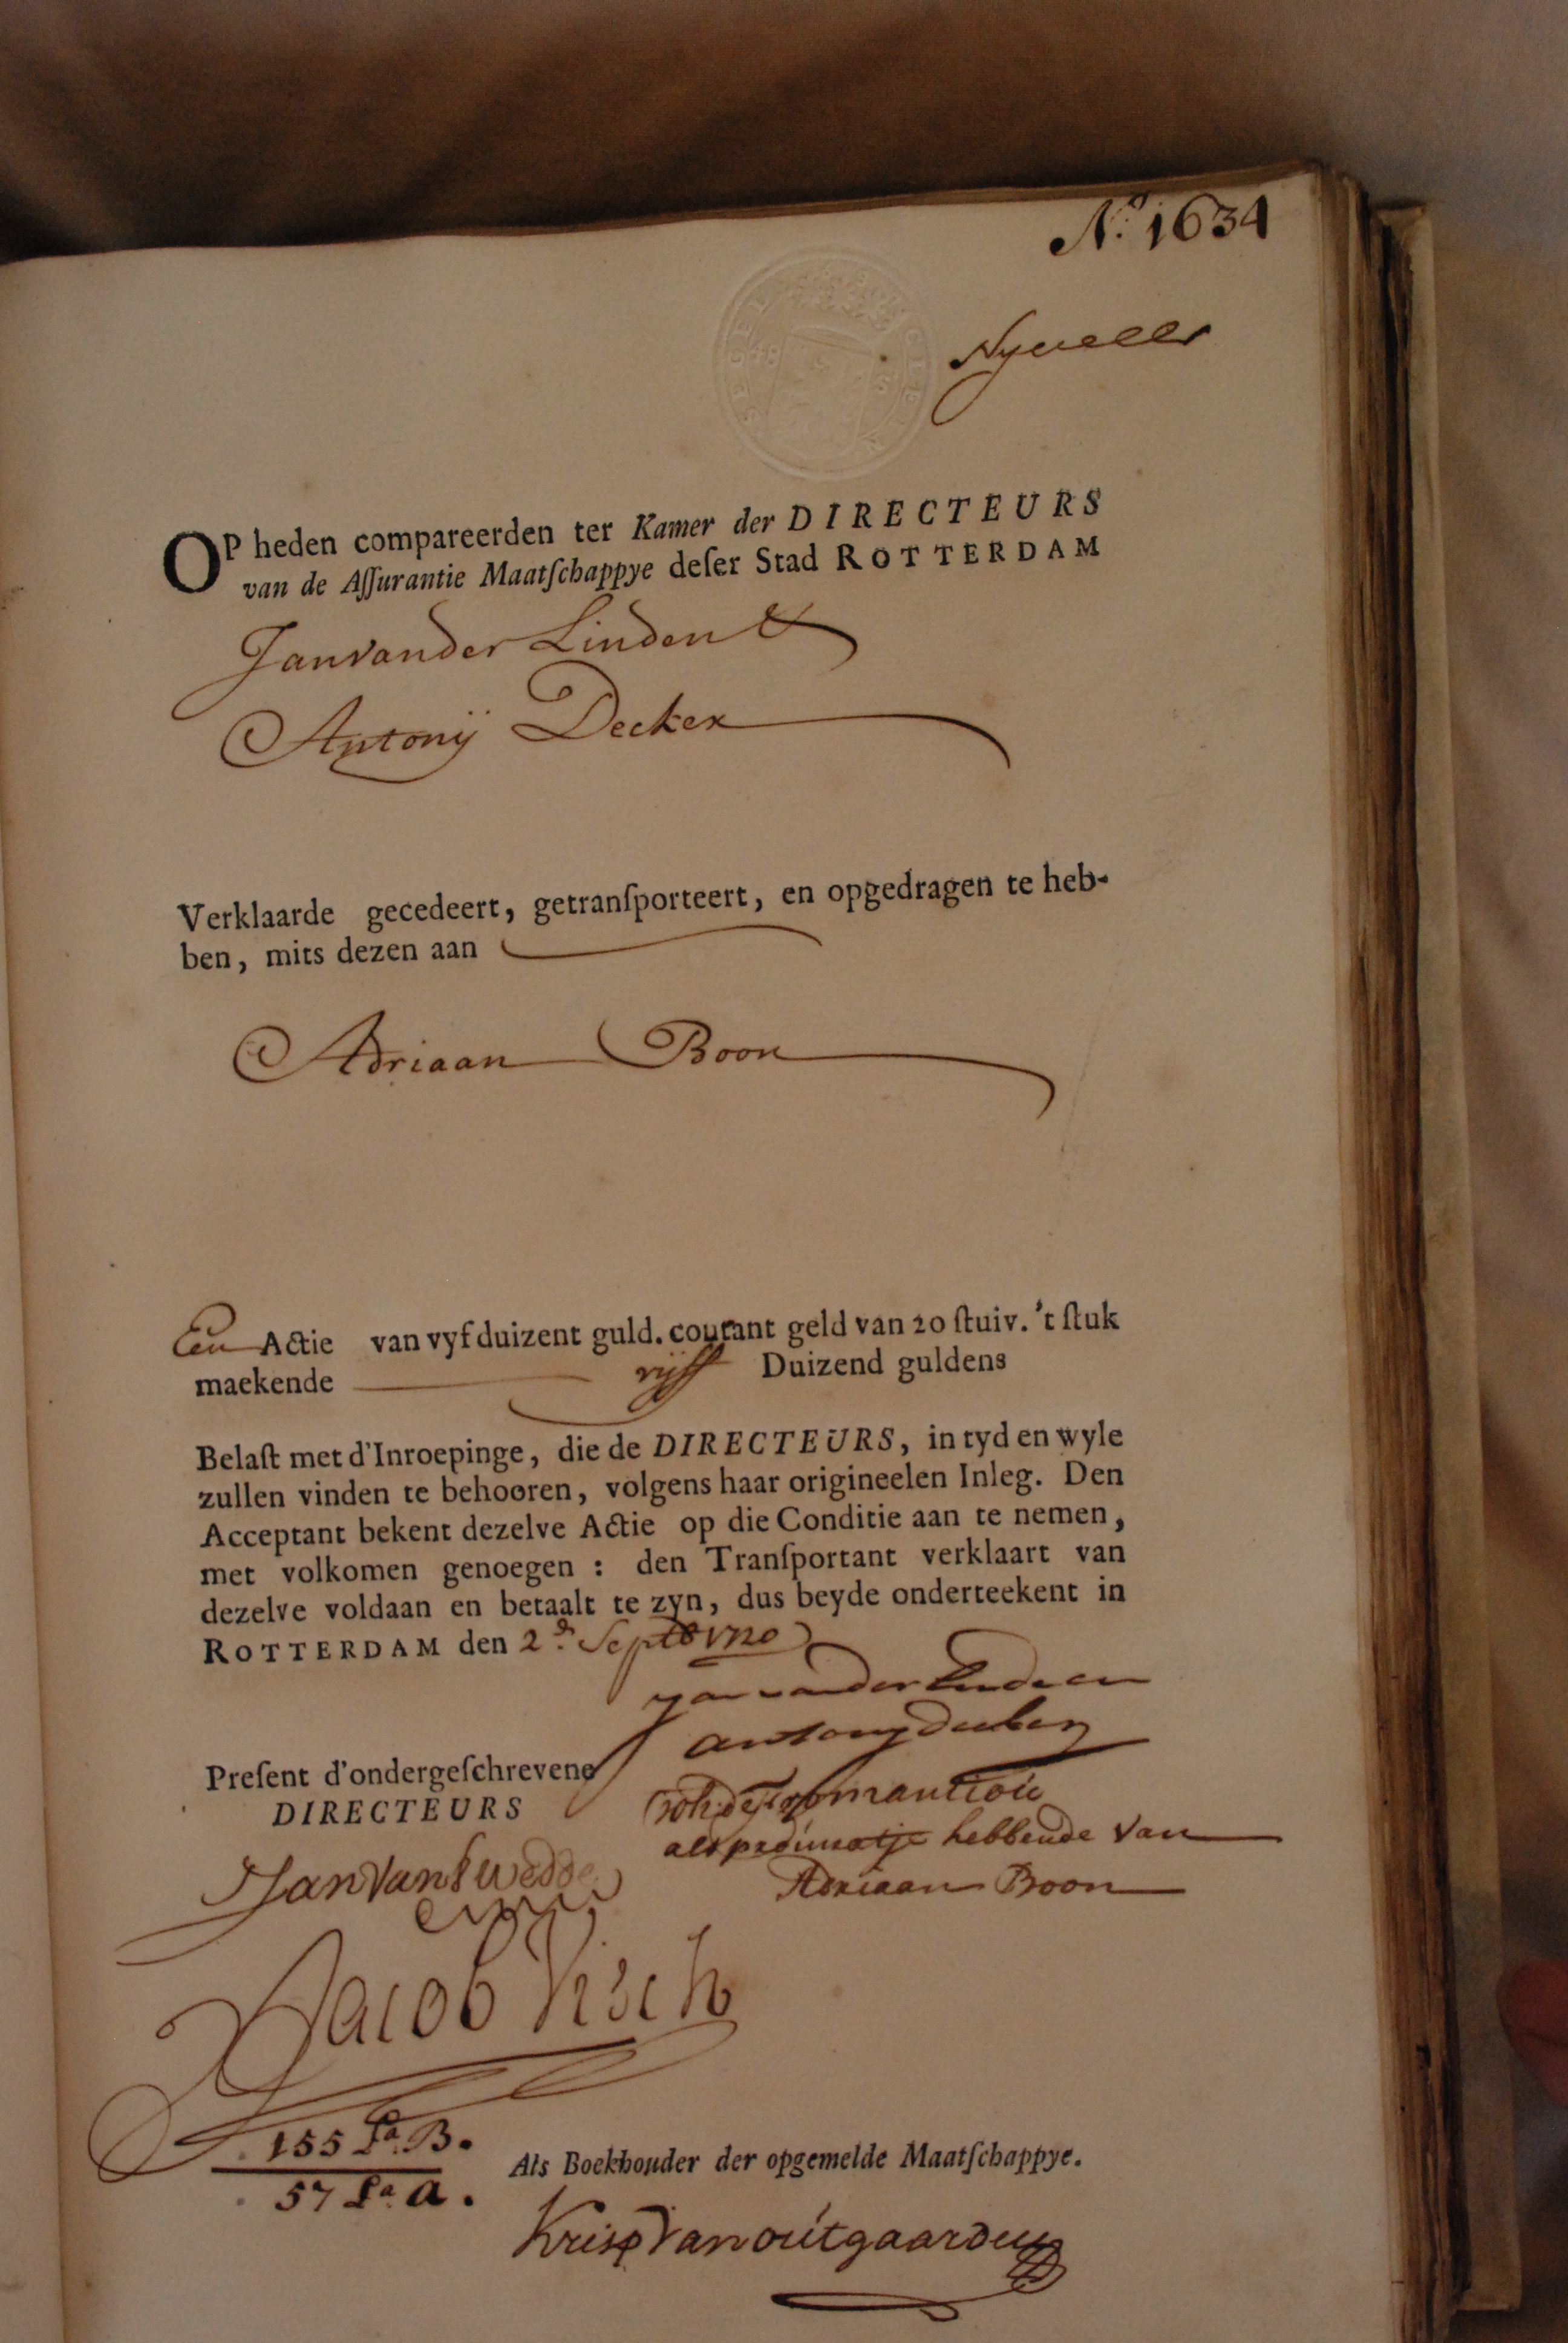 No. 1634
OP heden compareerden ter Kamer der DIRECTEURS
van de Aſſurantie Maatſchappye deſer Stad ROTTERDAM
Jan vander Linden &
Antonij Decker
Verklaarde gecedeert, getranſporteert, en opgedragen te heb-
ben, mits dezen aan
Adriaan Boon
Een Actie van vyf duizent guld. courant geld van 20 ſtuiv. 't ſtuk
maekende vijff Duizend guldens
Belaſt met d'Inroepinge, die de DIRECTEURS, in tyd en wyle
zullen vinden te behooren, volgens haar origineelen Inleg. Den
Acceptant bekent dezelve Actie op die Conditie aan te nemen,
met volkomen genoegen : den Tranſportant verklaart van
dezelve voldaan en betaalt te zyn, dus beyde onderteekent in
ROTTERDAM den 2de. Septb 1720
Jan vander Linden en
antony decker
Preſent d'ondergeſchrevene
DIRECTEURS
als procuratje hebbende van
Adriaan Boon
Jan van
Jacob Visch
155 La. B.
57 La. a.
Als Boekhouder der opgemelde Maatſchappye.
Krisp Van outgaarden